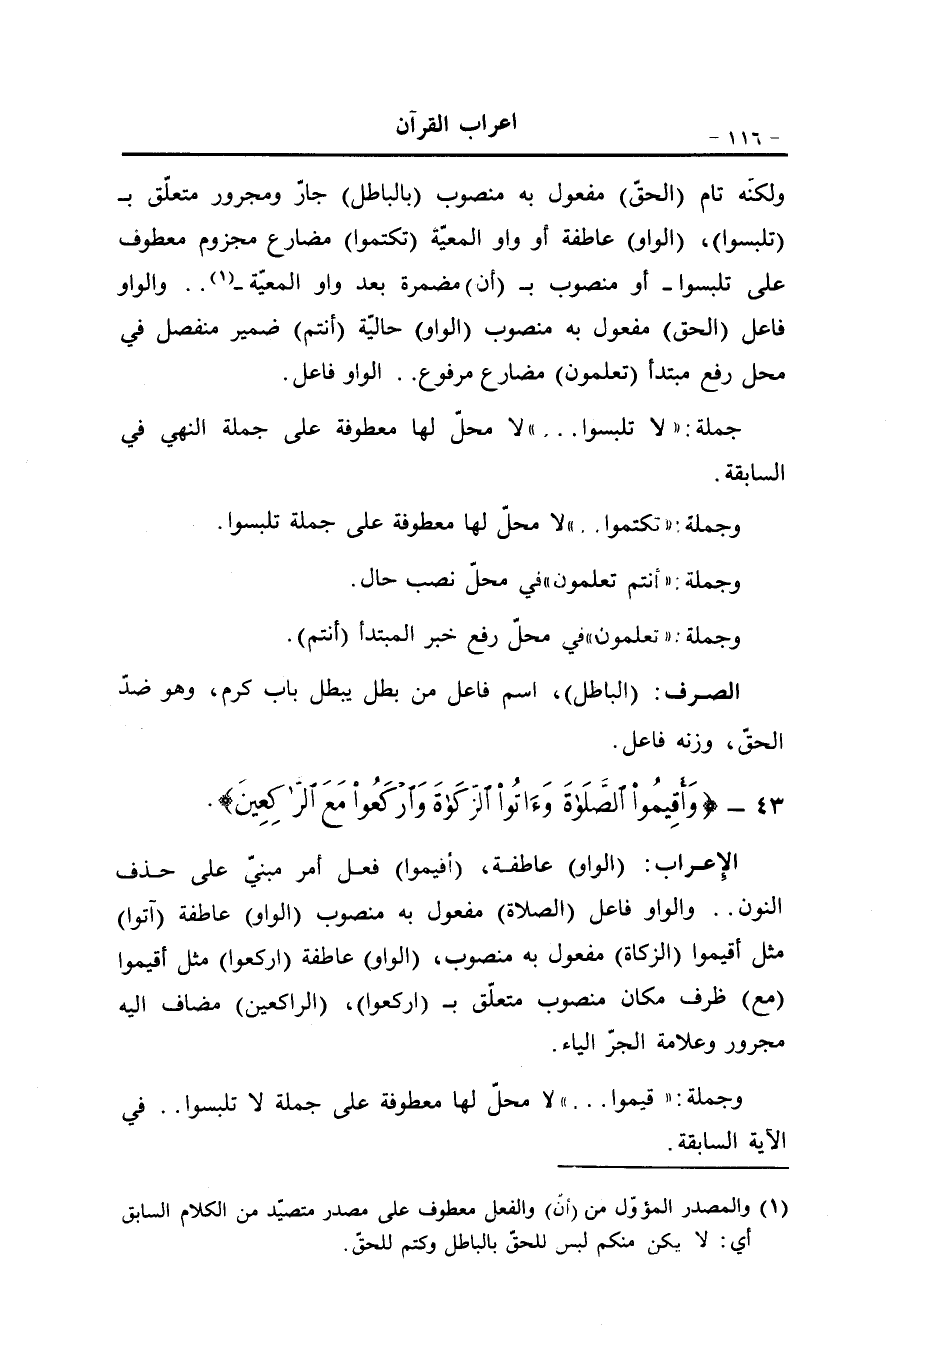 اعراب القرآن
- ١١٦ -
ولكنّه تام (الحقّ) مفعول به منصوب (بالباطل) جارّ ومجرور متعلّق بـ
(تلبسوا)، (الواو) عاطفة أو واو المعيّة (تكتموا) مضارع مجزوم معطوف
على تلبسوا ـ أو منصوب بـ (أن) مضمرة بعد واو المعيّة ـ(١) . . والواو
فاعل (الحق) مفعول به منصوب (الواو) حاليّة (أنتم) ضمير منفصل في
محل رفع مبتدأ (تعلمون) مضارع مرفوع . . الواو فاعل .
جملة : « لا تلبسوا . . . » لا محلّ لها معطوفة على جملة النهي في
السابقة .
وجملة : « تكتموا . . . » لا محلّ لها معطوفة على جملة تلبسوا .
وجملة : « أنتم تعلمون » في محلّ نصب حال .
وجملة : « تعلمون » في محلّ رفع خبر المبتدأ (أنتم) .
الصرف : (الباطل)، اسم فاعل من بطل يبطل باب كرم، وهو ضدّ
الحقّ، وزنه فاعل .
٤٣ ـ ﴿ وَأَقِيمُواْ ٱلصَّلَوٰةَ وَءَاتُواْ ٱلزَّكَوٰةَ وَٱرْكَعُواْ مَعَ ٱلرَّٰكِعِينَ﴾ .
الإعراب : (الواو) عاطفة، (أقيموا) فعل أمر مبنيّ على حذف
النون . . والواو فاعل (الصلاة) مفعول به منصوب (الواو) عاطفة (آتوا)
مثل أقيموا (الزكاة) مفعول به منصوب، (الواو) عاطفة (اركعوا) مثل أقيموا
(مع) ظرف مكان منصوب متعلّق بـ (اركعوا)، (الراكعين) مضاف اليه
مجرور وعلامة الجرّ الياء .
وجملة : « قيموا . . . » لا محلّ لها معطوفة على جملة لا تلبسوا . . في
الآية السابقة .
(١) والمصدر المؤوّل من (أن) والفعل معطوف على مصدر متصيّد من الكلام السابق
أي : لا يكن منكم لبس للحقّ بالباطل وكتم للحقّ .